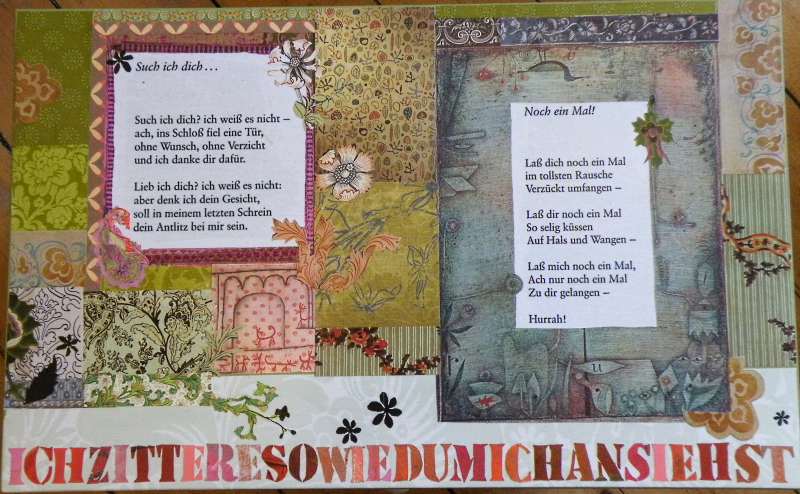 Such ich dich ...
Such ich dich? ich weiß es nicht –
ach, ins Schloß fiel eine Tür,
ohne Wunsch, ohne Verzicht
und ich danke dir dafür.
Lieb ich dich? ich weiß es nicht:
aber denk ich dein Gesicht,
soll in meinem letzten Schrein
dein Antlitz bei mir sein.
Noch ein Mal!
Laß dich noch ein Mal
im tollsten Rausche
Verzückt umfangen –
Laß dir noch ein Mal
So selig küssen
Auf Hals und Wangen –
Laß mich noch ein Mal,
Ach nur noch ein Mal
Zu dir gelangen –
Hurrah!
ICHZITTERESOWIEDUMICHANSIEHST